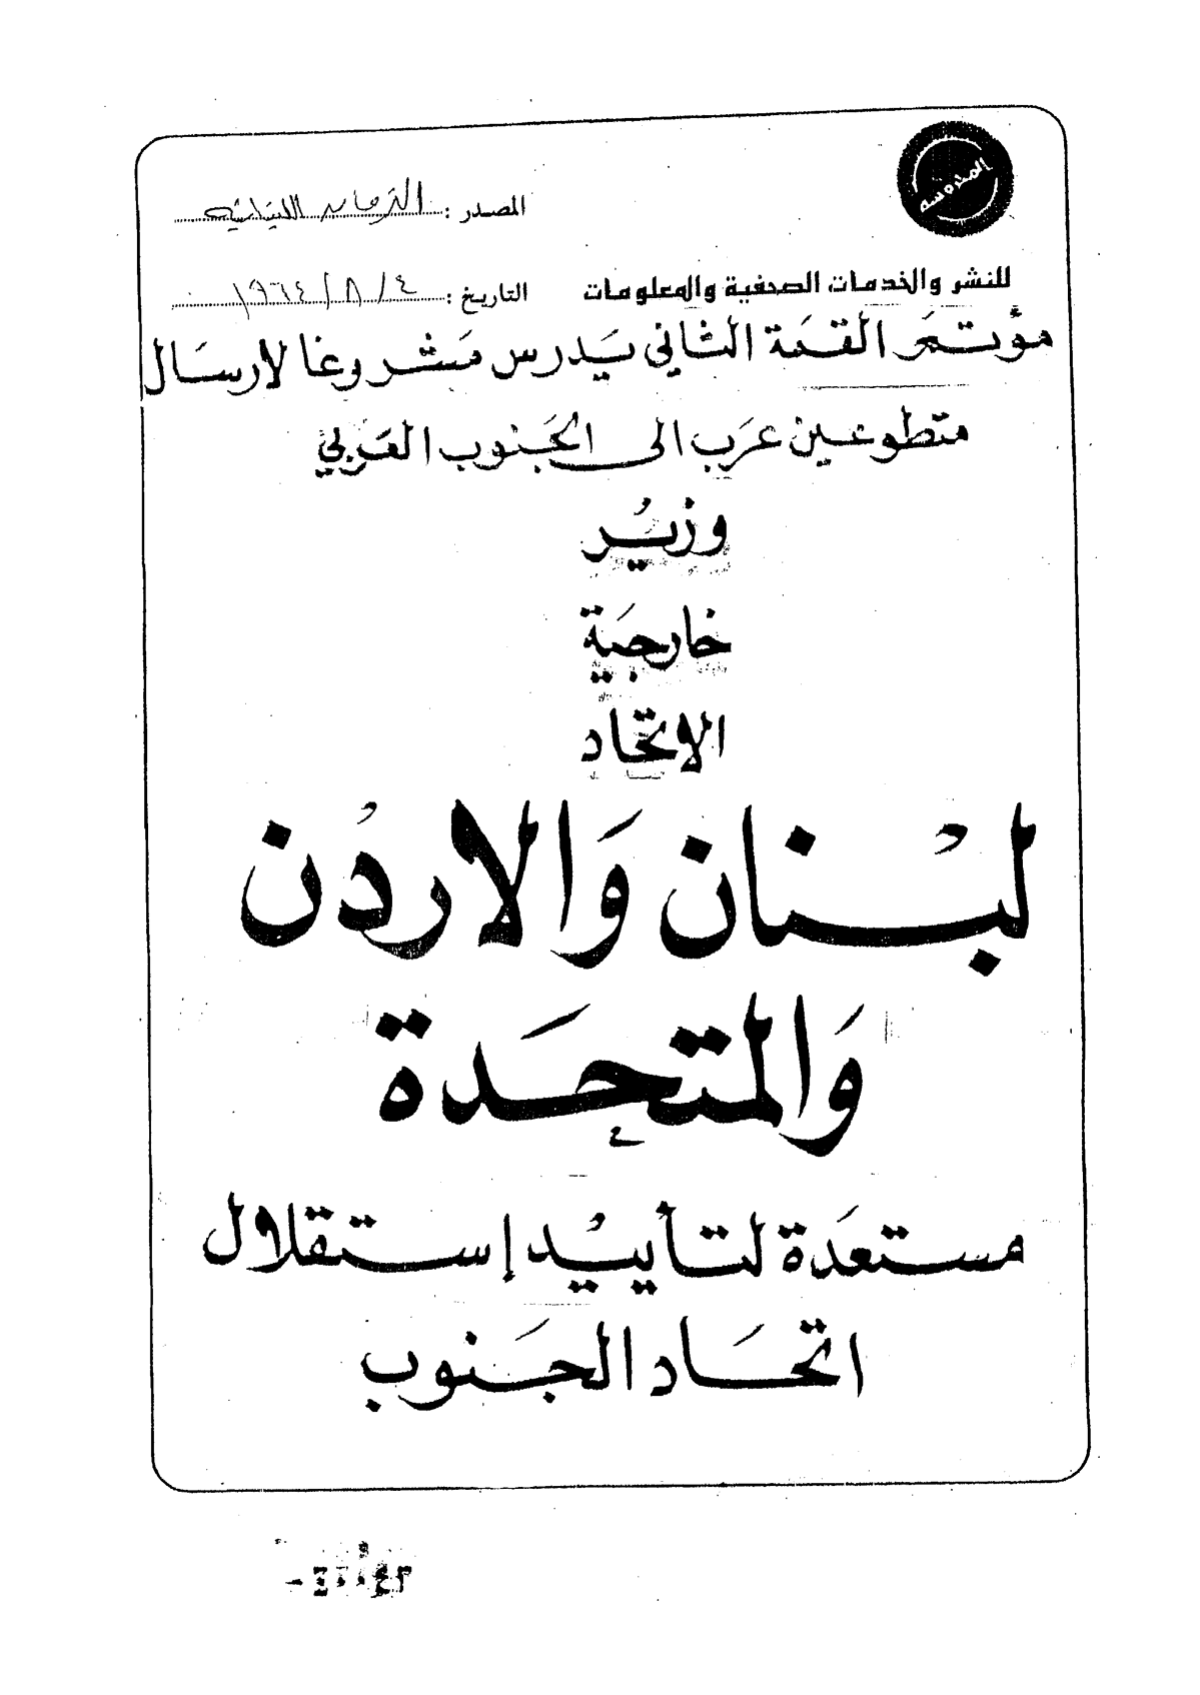 المحروسة
المصدر : اللبنانية
للنشر والخدمات الصحفية والمعلومات
التاريخ : ٤ / ٨ / ١٩٦٤
مؤتمر القمة الثاني يدرس مشروعا لارسال
متطوعين عرب الى الجنوب العربي
وزير
خارجية
الاتحاد
لبنان والاردن
والمتحدة
مستعدة لتأييد إستقلال
اتحاد الجنوب